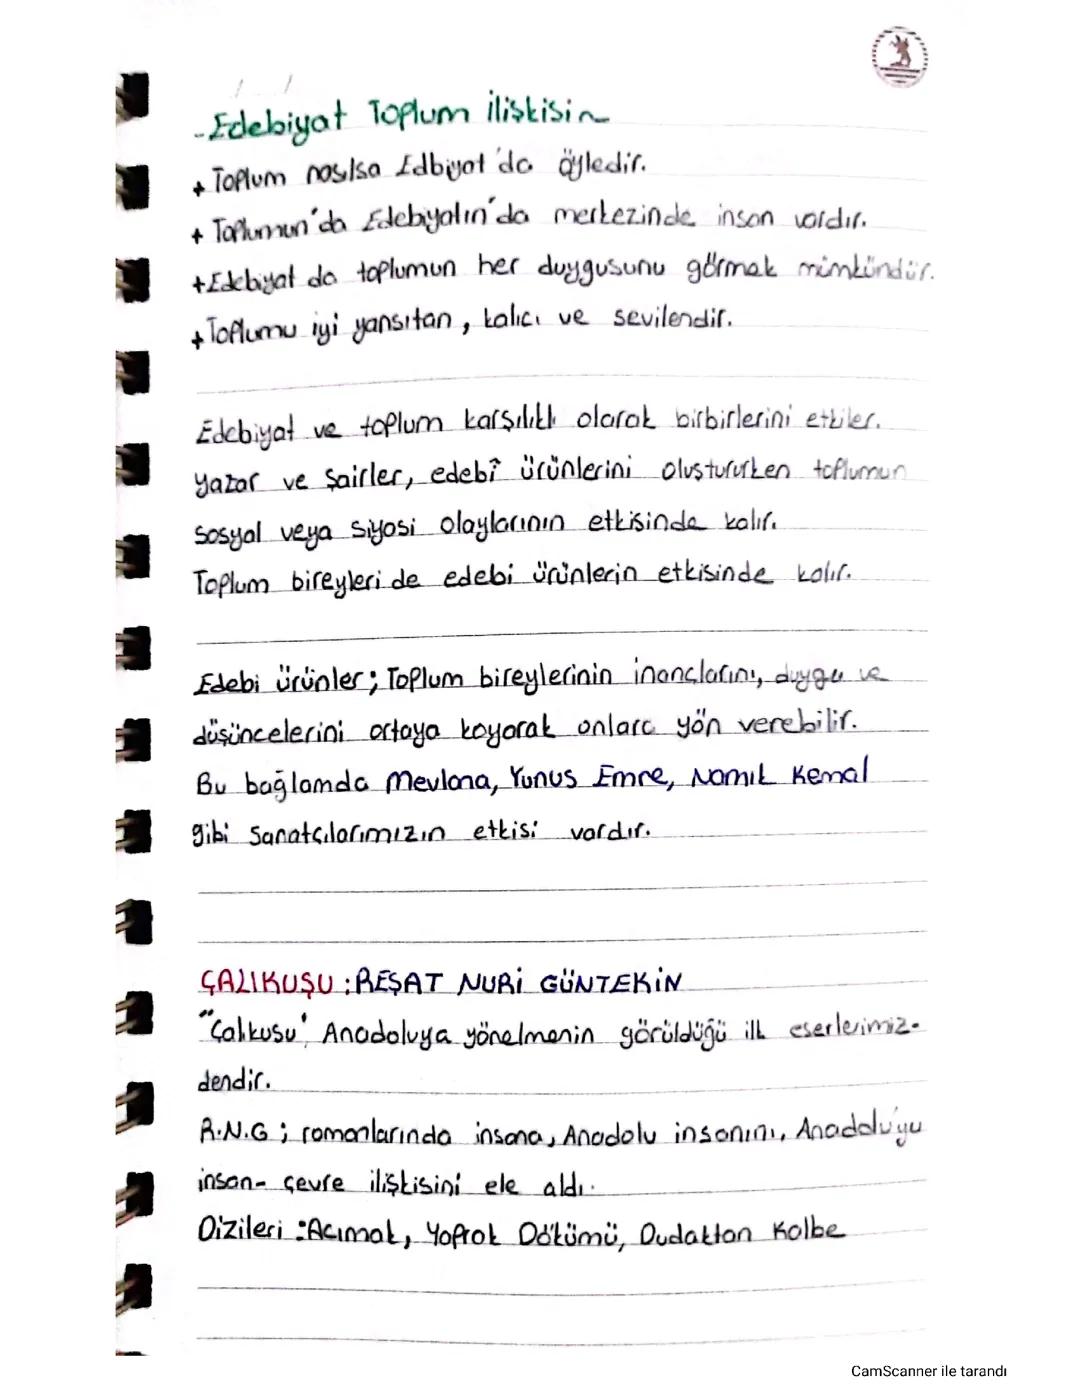 - Edebiyat Toplum İlişkisi ~
+ Toplum nasılsa Edbiyat'da öyledir.
+ Toplumun'da Edebiyatın'da merkezinde insan vardır.
+ Edebiyat da toplumun her duygusunu görmek mümkündür.
+ Toplumu iyi yansıtan, kalıcı ve sevilendir.
Edebiyat ve toplum karşılıklı olarak birbirlerini etkiler.
Yazar ve Şairler, edebî ürünlerini oluştururken toplumun
sosyal veya siyasi olaylarının etkisinde kalır.
Toplum bireyleri de edebi ürünlerin etkisinde kalır.
Edebi ürünler; Toplum bireylerinin inançlarını, duygu ve
düşüncelerini ortaya koyarak onlara yön verebilir.
Bu bağlamda Mevlana, Yunus Emre, Namık Kemal
gibi Sanatçılarımızın etkisi vardır.
ÇALIKUŞU : REŞAT NURİ GÜNTEKİN
"Çalıkuşu" Anadoluya yönelmenin görüldüğü ilk eserlerimiz-
dendir.
R.N.G ; romanlarında insana, Anadolu insanını, Anadolu'yu
insan- çevre ilişkisini ele aldı.
Dizileri : Acımak, Yaprak Dökümü, Dudaktan Kalbe
CamScanner ile tarandı